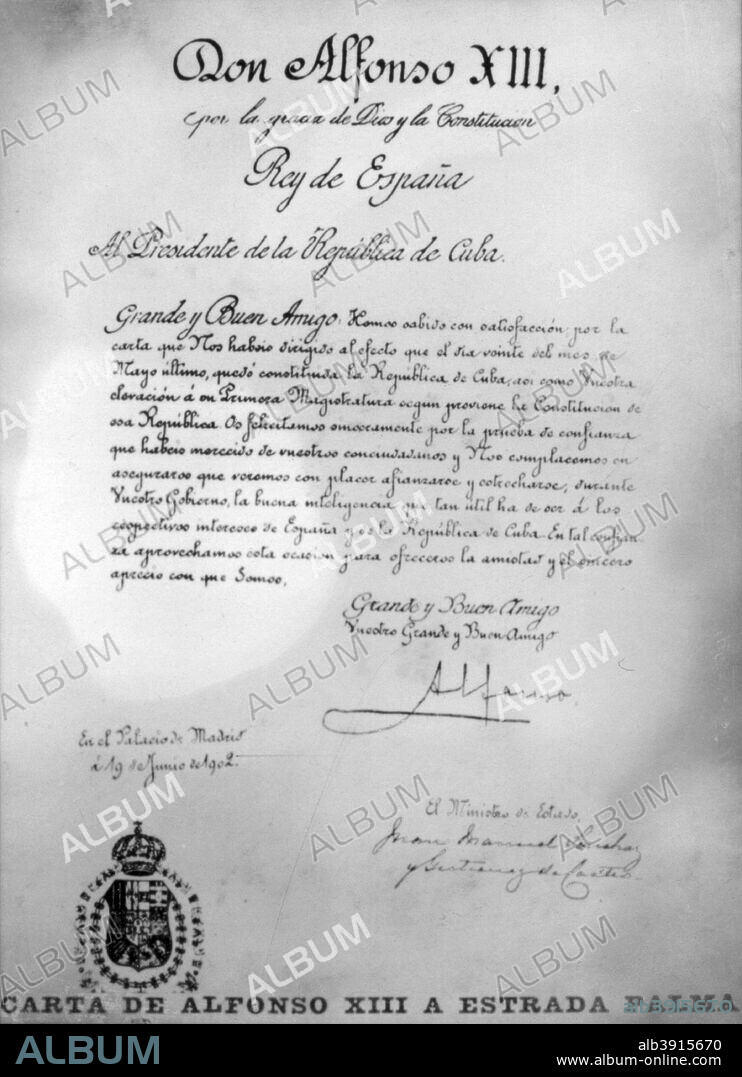 Don Alfonso XIII,
por la gracia de Dios y la Constitución
Rey de España
Al Presidente de la República de Cuba.
Grande y Buen Amigo: Hemos sabido con satisfacción, por la
carta que Nos habéis dirigido al efecto que el día veinte del mes de
Mayo último, quedó constituida la República de Cuba, así como Vuestra
elevación á su Primera Magistratura según previene la Constitución de
esa República. Os felicitamos sinceramente por la prueba de confianza
que habéis merecido de vuestros conciudadanos y Nos complacemos en
aseguraros que veremos con placer afianzarse y estrecharse, durante
Vuestro Gobierno, la buena inteligencia que tan útil ha de ser á los
respectivos intereses de España y de la República de Cuba. En tal confian-
za aprovechamos esta ocasión para ofreceros la amistad y el sincero
aprecio con que Somos,
Grande y Buen Amigo
Vuestro Grande y Buen Amigo
Alfonso
En el Palacio de Madrid
á 19 de Junio de 1902.
El Ministro de Estado,
Juan Manuel
y Gutierrez de Castro
CARTA DE ALFONSO XIII A ESTRADA PALMA
ab3915670
ALBUM
alb3915670
www.album-online.com